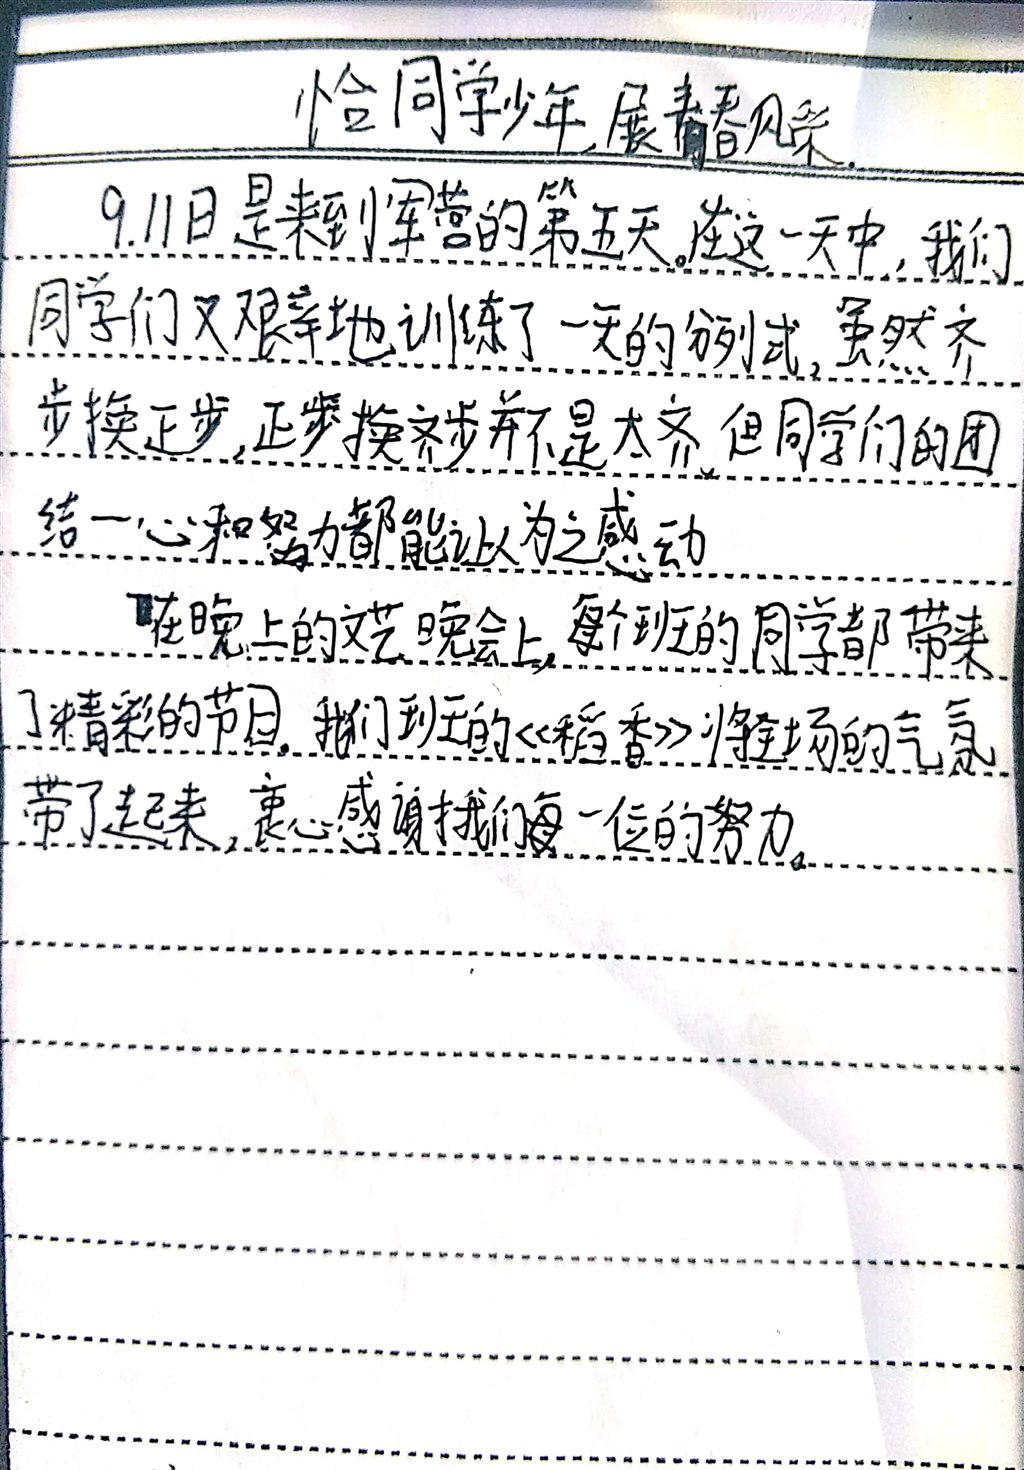 恰同学少年,展青春风采.
9.11日是来到军营的第五天。在这一天中,我们
同学们又艰辛地训练了一天的分列式,虽然齐
步换正步,正步换齐步并不是太齐,但同学们的团
结一心和努力都能让人为之感动
在晚上的文艺晚会上,每个班的同学都带来
了精彩的节目。我们班的<<稻香>>将全场的气氛
带了起来,衷心感谢我们每一位的努力。